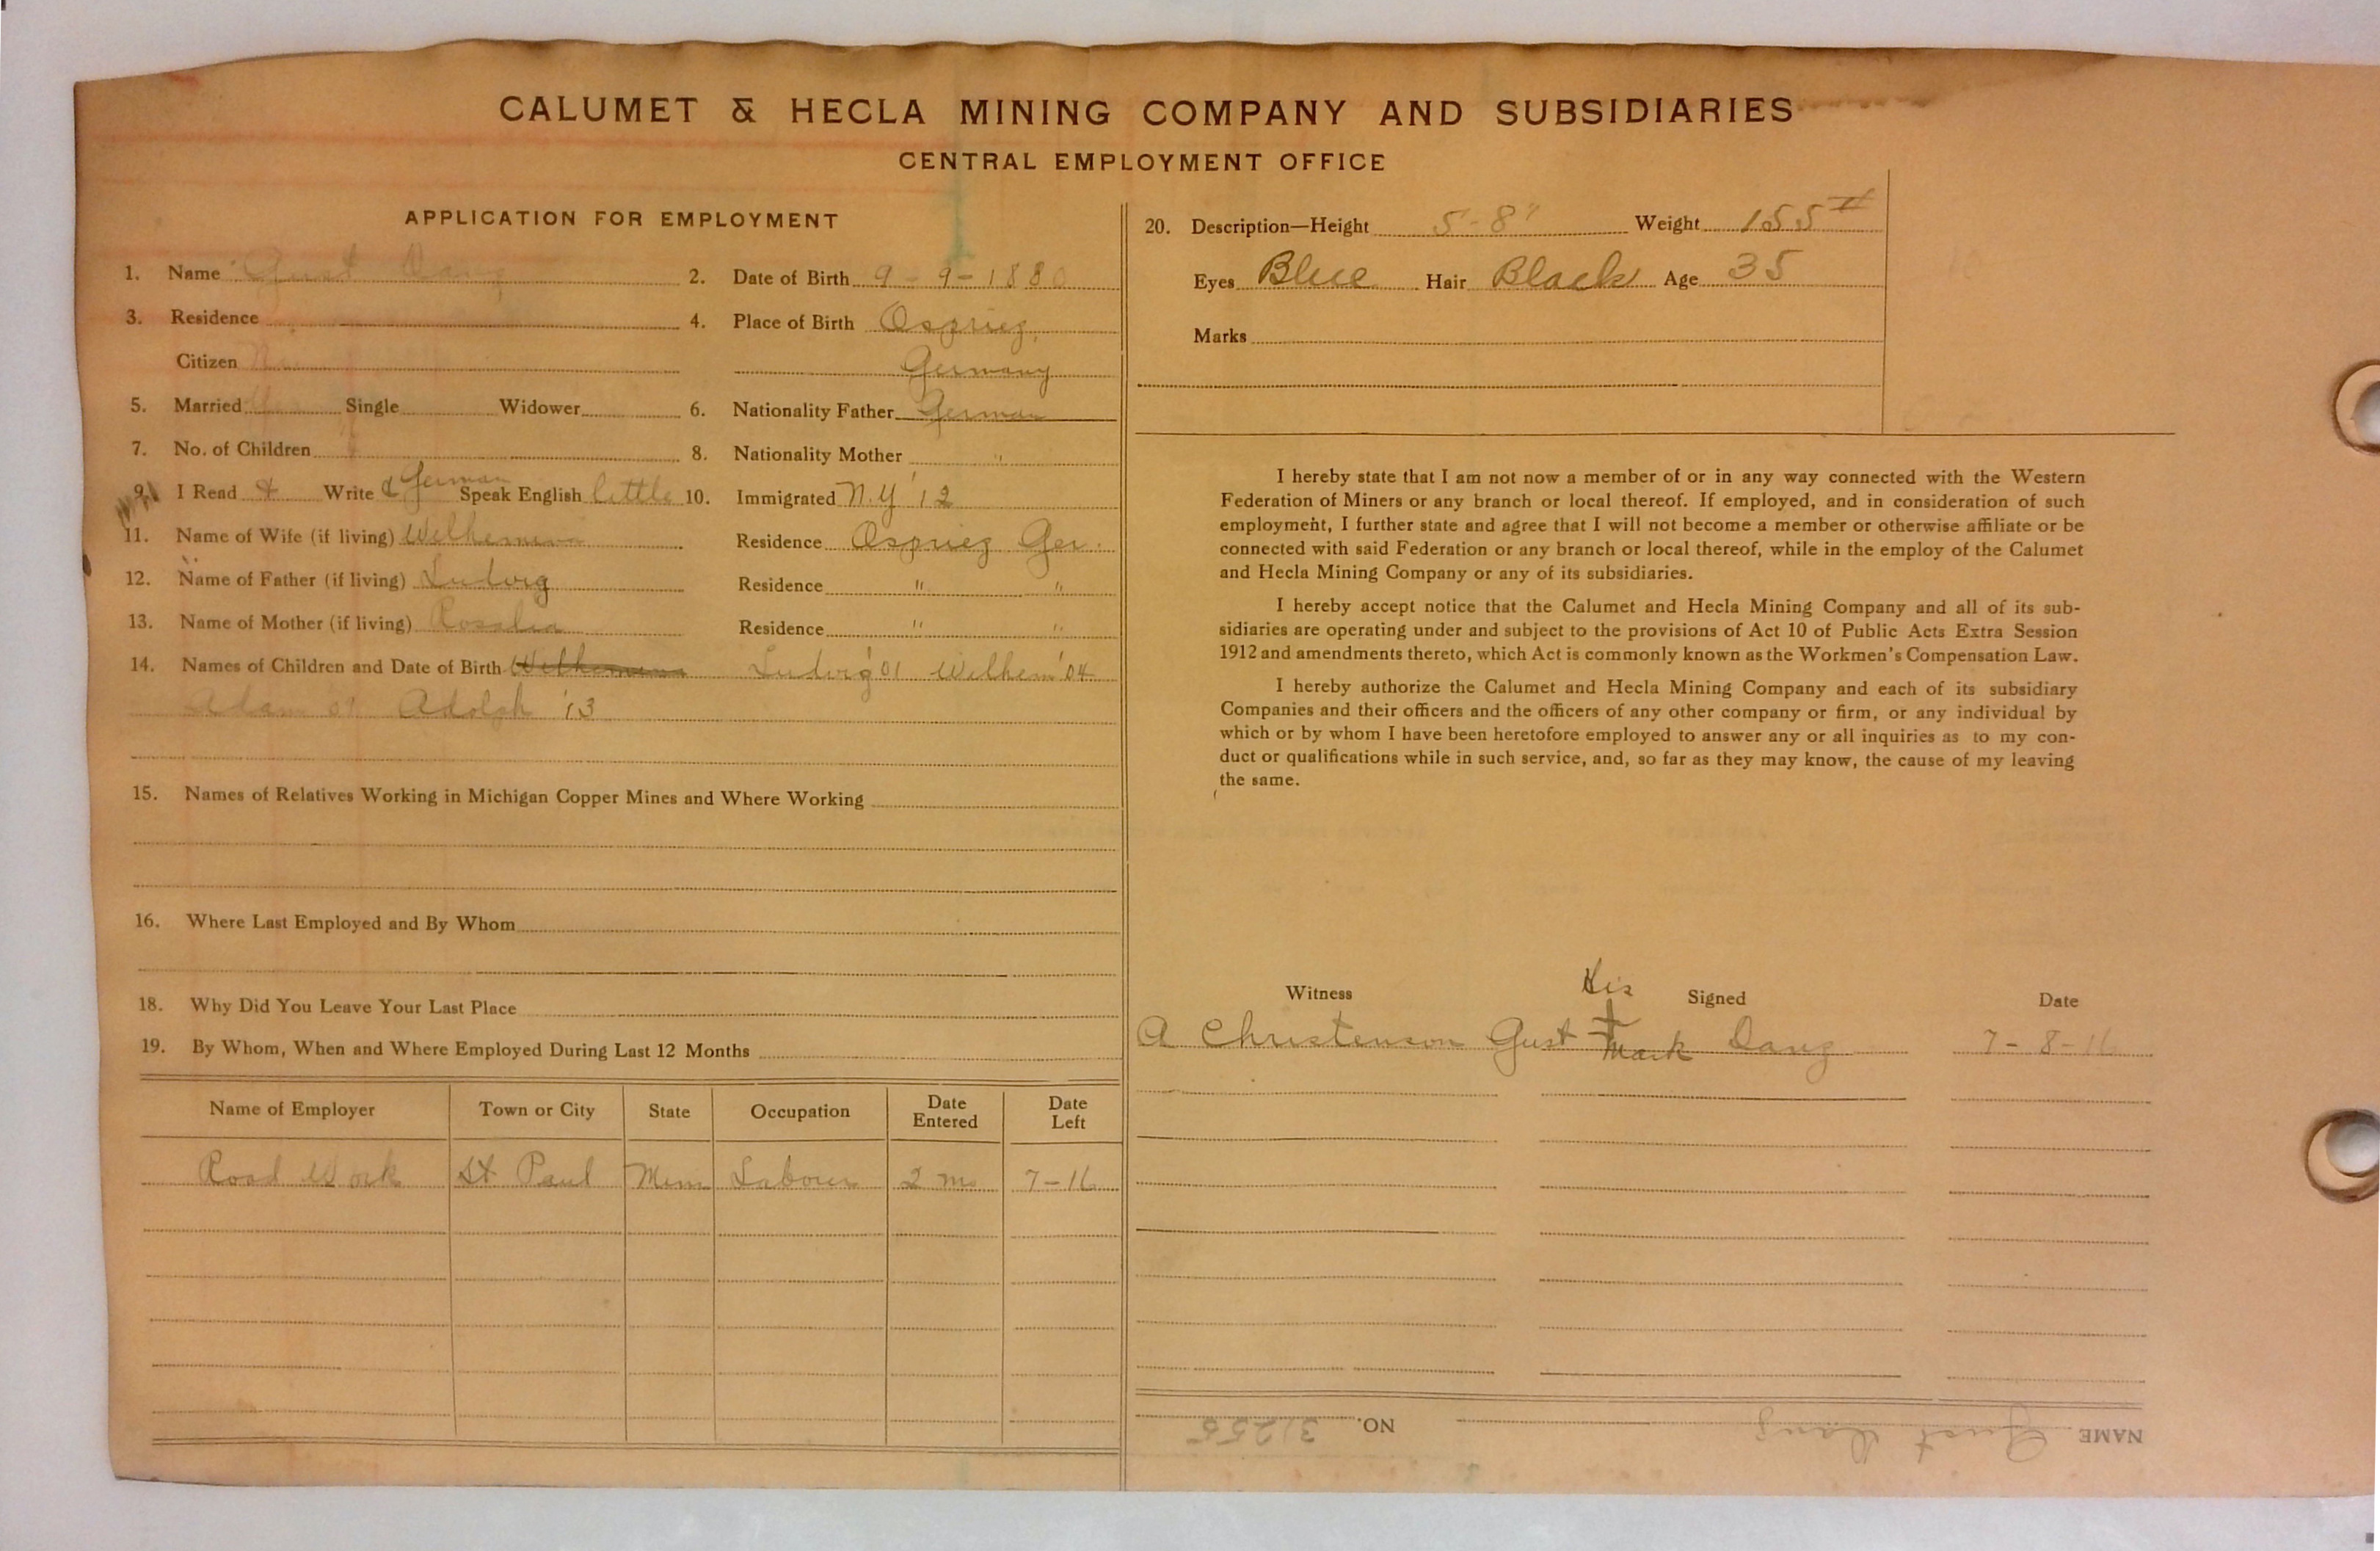 CALUMET & HECLA MINING COMPANY AND SUBSIDIARIES
CENTRAL EMPLOYMENT OFFICE
APPLICATION FOR EMPLOYMENT
1. Name Gust Dang 2. Date of Birth 9-9-1880
3. Residence 4. Place of Birth Osprieg,
Citizen No Germany
5. Married Yes Single Widower 6. Nationality Father German
7. No. of Children 4 8. Nationality Mother "
9. I Read & Write & German Speak English little 10. Immigrated N.Y '12
11. Name of Wife (if living) Welhemina Residence Osprieg Ger.
12. Name of Father (if living) Ludvig Residence " "
13. Name of Mother (if living) Rosalia Residence " "
14. Names of Children and Date of Birth Welhemina Ludvig '01 Wilhem '04
Adam Adolph '13
15. Names of Relatives Working in Michigan Copper Mines and Where Working
16. Where Last Employed and By Whom
18. Why Did You Leave Your Last Place
19. By Whom, When and Where Employed During Last 12 Months
Name of Employer Town or City State Occupation Date Entered Date Left
Road Work St Paul Minn Labour 2 mo 7-16
20. Description—Height 5'-8" Weight 155#
Eyes Blue Hair Black Age 35
Marks
I hereby state that I am not now a member of or in any way connected with the Western
Federation of Miners or any branch or local thereof. If employed, and in consideration of such
employment, I further state and agree that I will not become a member or otherwise affiliate or be
connected with said Federation or any branch or local thereof, while in the employ of the Calumet
and Hecla Mining Company or any of its subsidiaries.
I hereby accept notice that the Calumet and Hecla Mining Company and all of its sub-
sidiaries are operating under and subject to the provisions of Act 10 of Public Acts Extra Session
1912 and amendments thereto, which Act is commonly known as the Workmen's Compensation Law.
I hereby authorize the Calumet and Hecla Mining Company and each of its subsidiary
Companies and their officers and the officers of any other company or firm, or any individual by
which or by whom I have been heretofore employed to answer any or all inquiries as to my con-
duct or qualifications while in such service, and, so far as they may know, the cause of my leaving
the same.
Witness His Signed Date
A Christenson Gust Mark Dang 7-8-16
NAME Gust Dang NO. 31255